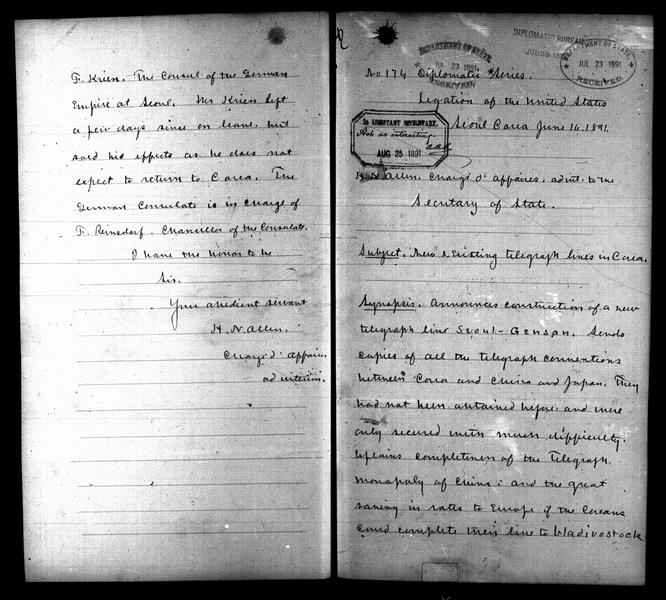 F. Krien. The Consul of the German
Empire at Seoul. Mr Krien left
a few days since on leave, but
sold his effects as he does not
expect to return to Corea. The
German Consulate is in charge of
F. Reinsdorf. Chancellor of the Consulate.
I have the honor to be
Sir.
Your obedient servant
H. N. Allen.
Chargé d' affaires
ad interim.
DIPLOMATIC BUREAU
DEPARTMENT OF STATE
JUL 23 1891
RECEIVED
DEPARTMENT OF STATE
JUL 23 1891
RECEIVED
No 174 Diplomatic Series.
Legation of the United States
Seoul Corea June 16. 1891.
2D ASSISTANT SECRETARY.
Ask as interesting
aaa
AUG 25 1891
H. N. Allen. Chargé d' affaires. ad int. to the
Secretary of State.
Subject. New & Existing telegraph lines in Corea.
Synopsis. Announces construction of a new
telegraph line Seoul - Gensan. Sends
copies of all the telegraph conventions
between Corea and China and Japan. They
had not been obtained before and were
only secured with much difficulty.
Explains completeness of the Telegraph
monopoly of China: and the great
saving in rates to Europe if the Coreans
could complete their line to Wladivostock